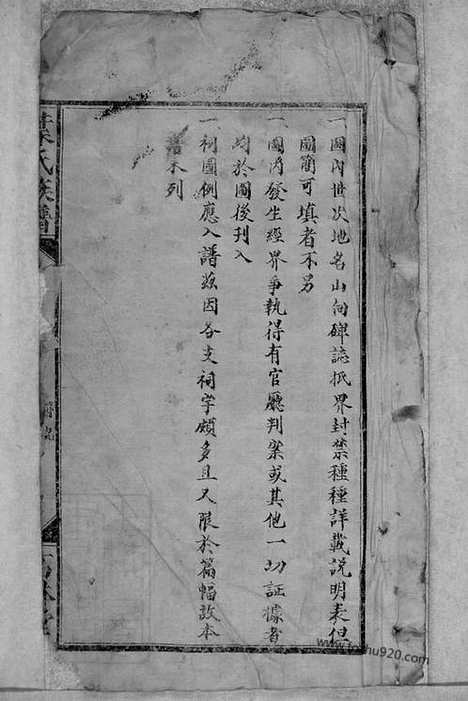 一圖內世次地名山向碑誌抵界封禁種種詳載說明表但
圖簡可填者不另
一圖內發生經界爭執得有官廳判案或其他一切証據者
均於圖後刊入
一祠圖例應入譜茲因各支祠宇頗多且又限於篇幅故本
譜不列
氏族譜
www.shu920.com